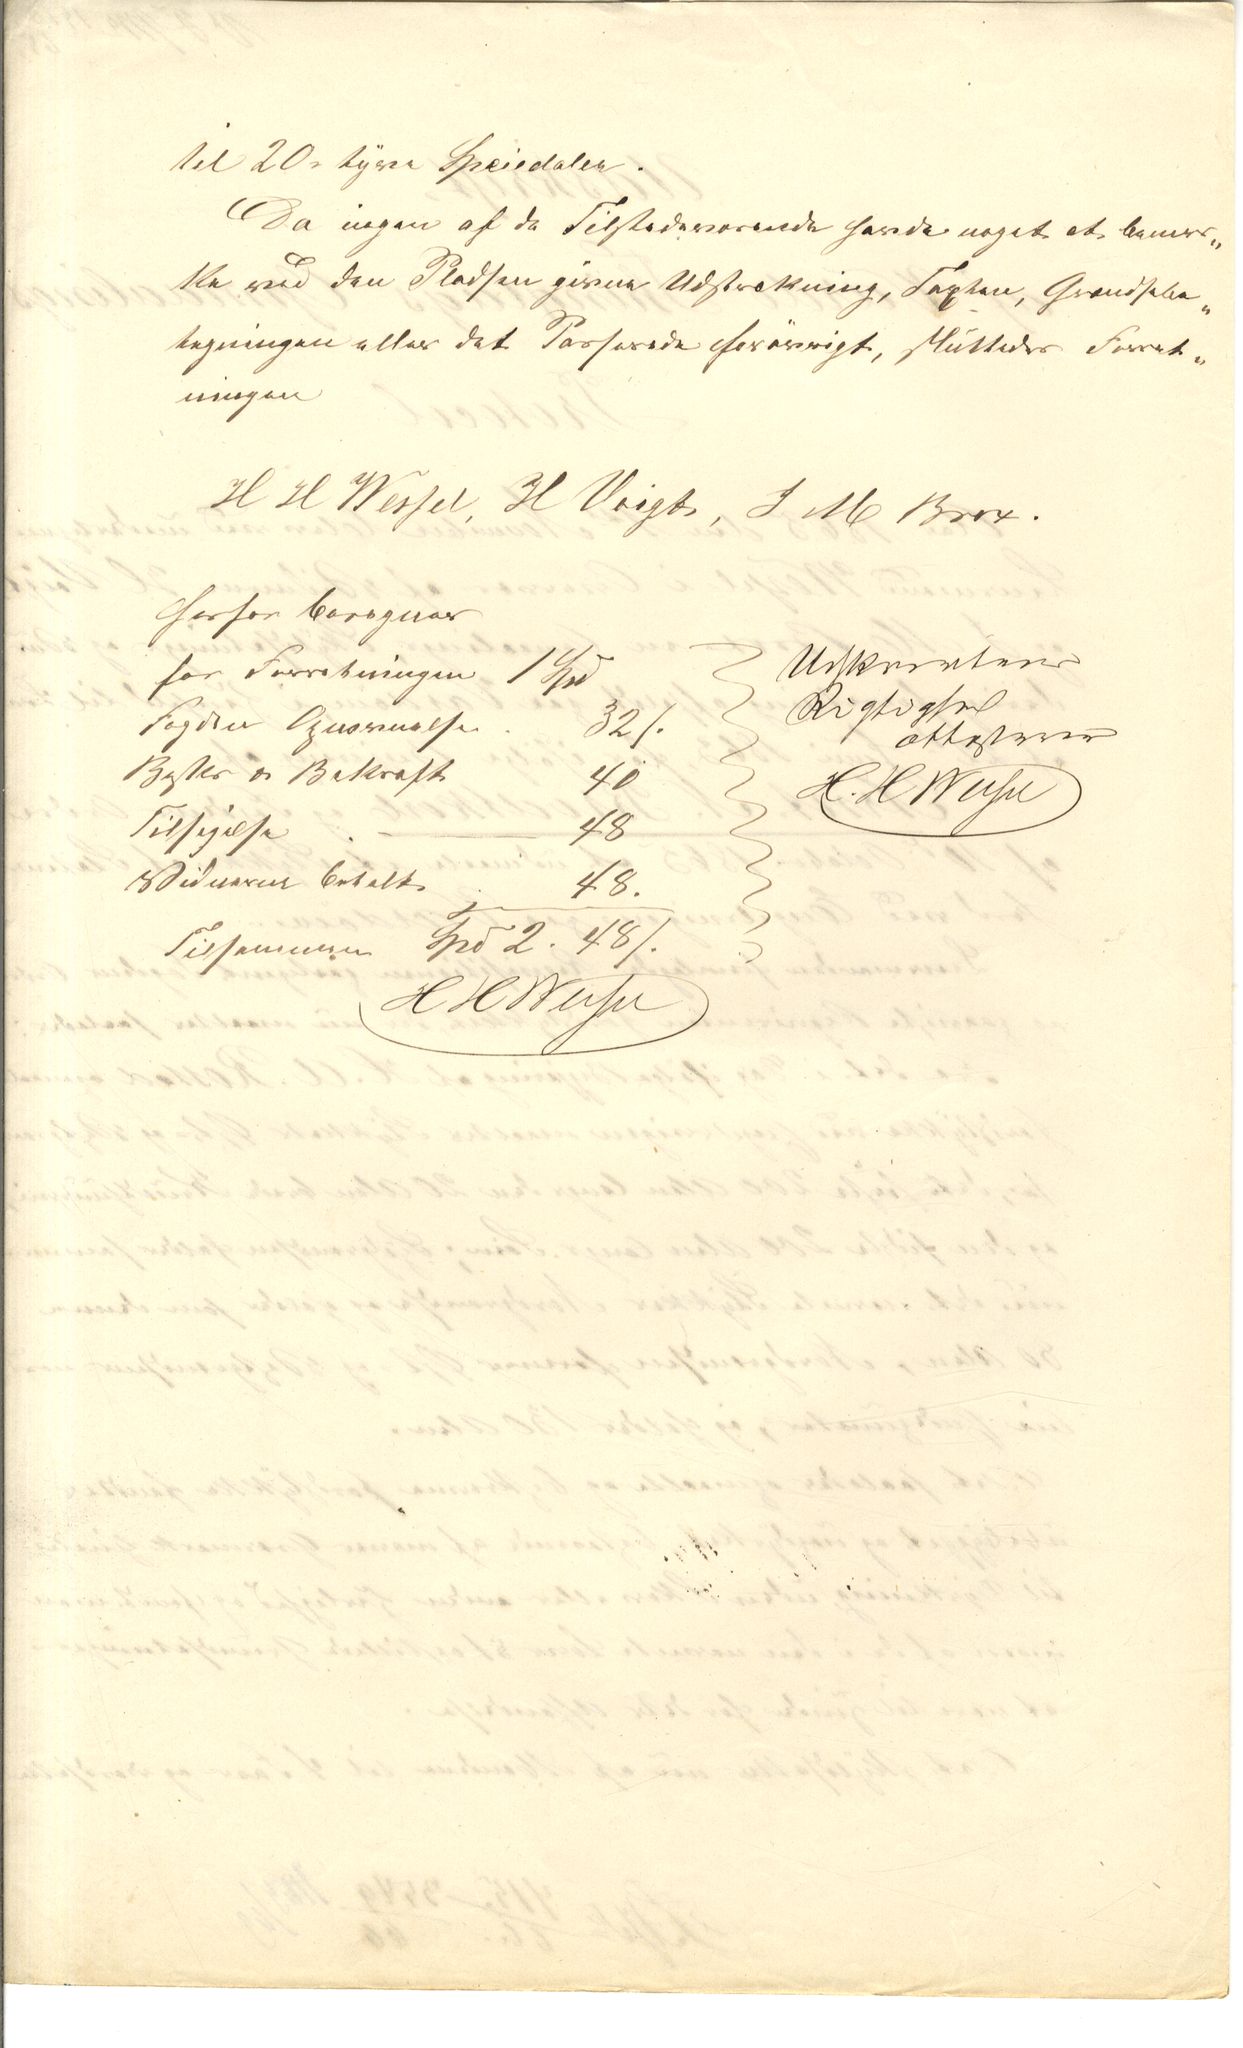 til 20 - tyve Speciedaler.
Da ingen af de Tilstedeværende havde noget at bemær„
ke ved den Pladsen givne Udstrekning, Taxten, Grændsebe„
tegningen eller det Passerede forövrigt, sluttedes Forret„
ningen
H H Wessel, H Voigt, J M Brox.
Herfor beregnes
for Forretningen 1 Spd
Fogdens Opnævnelse . 32 s.
40
Tilsigelse . — 48
Vidnerne betalt . 48.
Tilsammen Spd 2. 48 s.
H H Wessel
Udskriftens
Rigtighed
attesterer
H. H Wessel